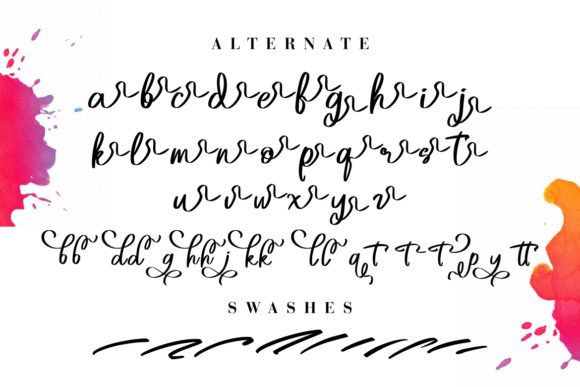 ALTERNATE
a b c d e f g h i j
k l m n o p q r s t
u v w x y z
b b d d g h h j k k l l q t t t p y tt
SWASHES